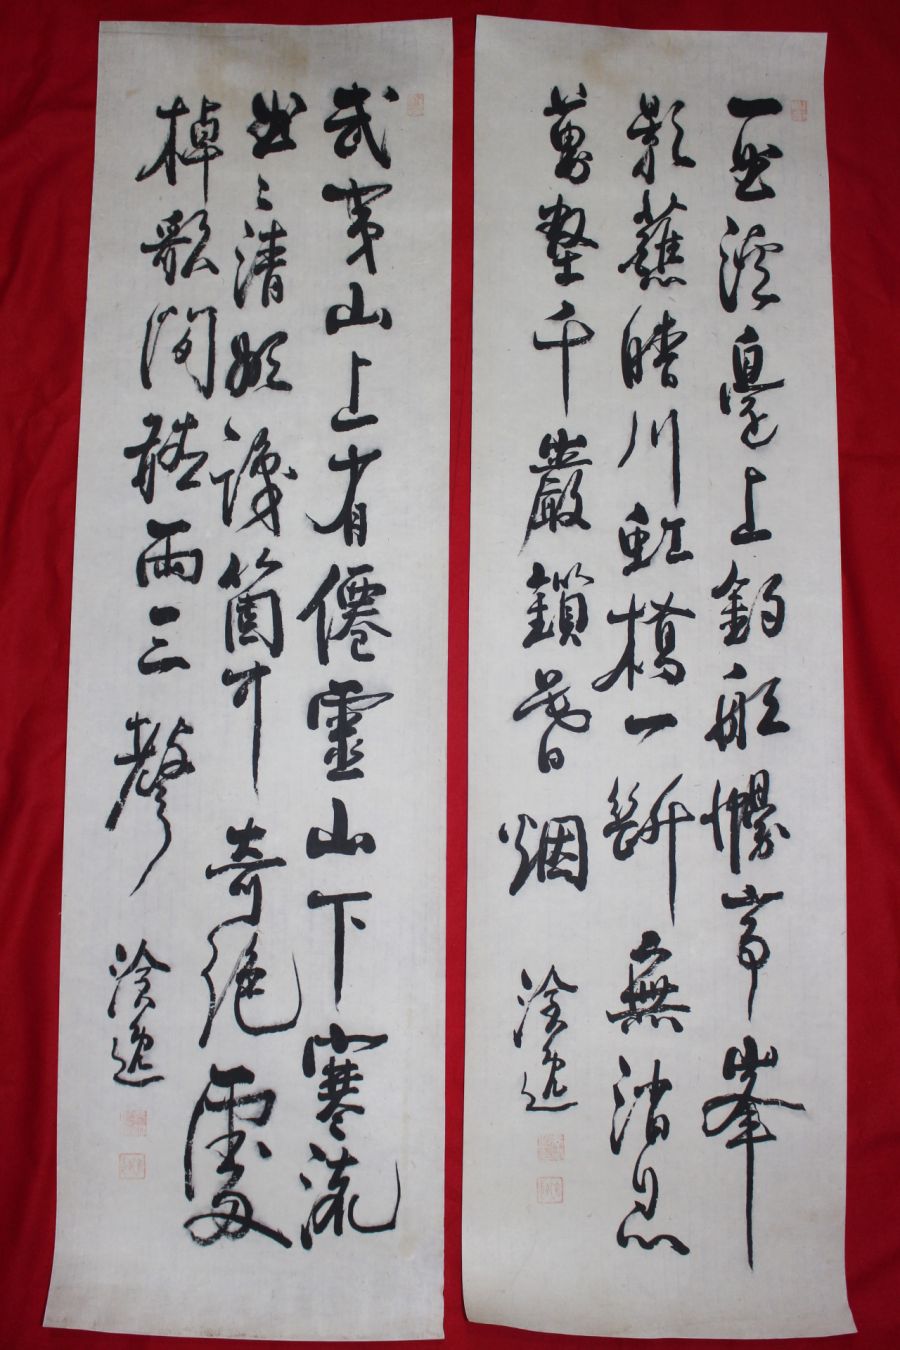 一曲溪邊上釣船幔亭峯
影蘸晴川虹橋一斷無消息
萬壑千巖鎖暮烟
武夷山上有僊靈山下寒流
曲〻清欲識箇中奇絶處
棹歌閑聽兩三聲